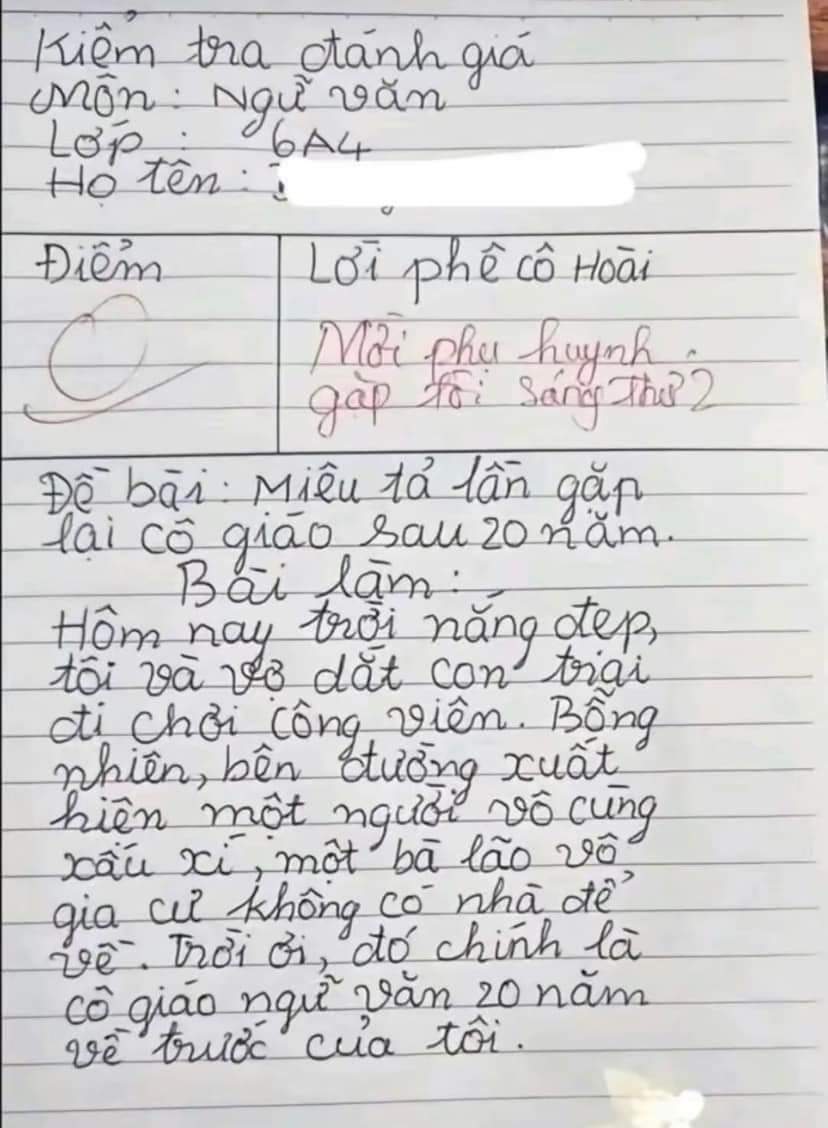 Kiểm tra đánh giá
Môn: Ngữ văn
Lớp: 6A4
Họ tên:
Điểm
Lời phê cô Hoài
0
Mời phụ huynh
gặp tôi sáng Thứ 2
Đề bài: Miêu tả lần gặp
lại cô giáo sau 20 năm.
Bài làm:
Hôm nay trời nắng đẹp,
tôi và vợ dắt con trai
đi chơi công viên. Bỗng
nhiên, bên đường xuất
hiện một người vô cùng
xấu xí, một bà lão vô
gia cư không có nhà để
về. Trời ơi, đó chính là
cô giáo ngữ văn 20 năm
về trước của tôi.